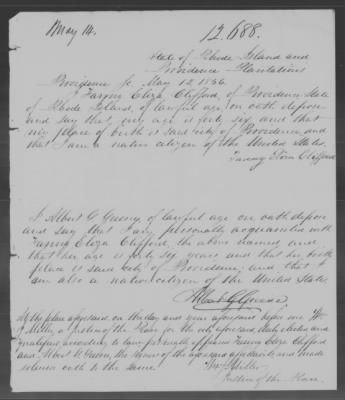 May 14.
12.688.
State of Rhode Island and
Providence Plantations
Providence sc. May 12, 1856.
I Eliza Clifford, of Providence State
of Rhode Island, of lawful age on oath depose
and say that, my age is forty six, and that
my place of birth is said city of Providence, and
that I am a native citizen of the United States.
Clifford
I Albert G Greene of lawful age on oath depose
and say that I am personally acquainted with
Eliza Clifford, the above named and
that her age is forty six years and that her birth
place is said City of Providence; and that I
am also a native citizen of the United States
Albert G Greene
At the place aforesaid, on this day and year aforesaid before me Wm
Miller a Justice of the Peace for the city aforesaid, duly elected and
qualified according to law, personally appeared Eliza Clifford
and Albert G Greene, the signers of the aforegoing affidavits and made
solemn oath to the same.
Wm Miller
Justice of the Peace